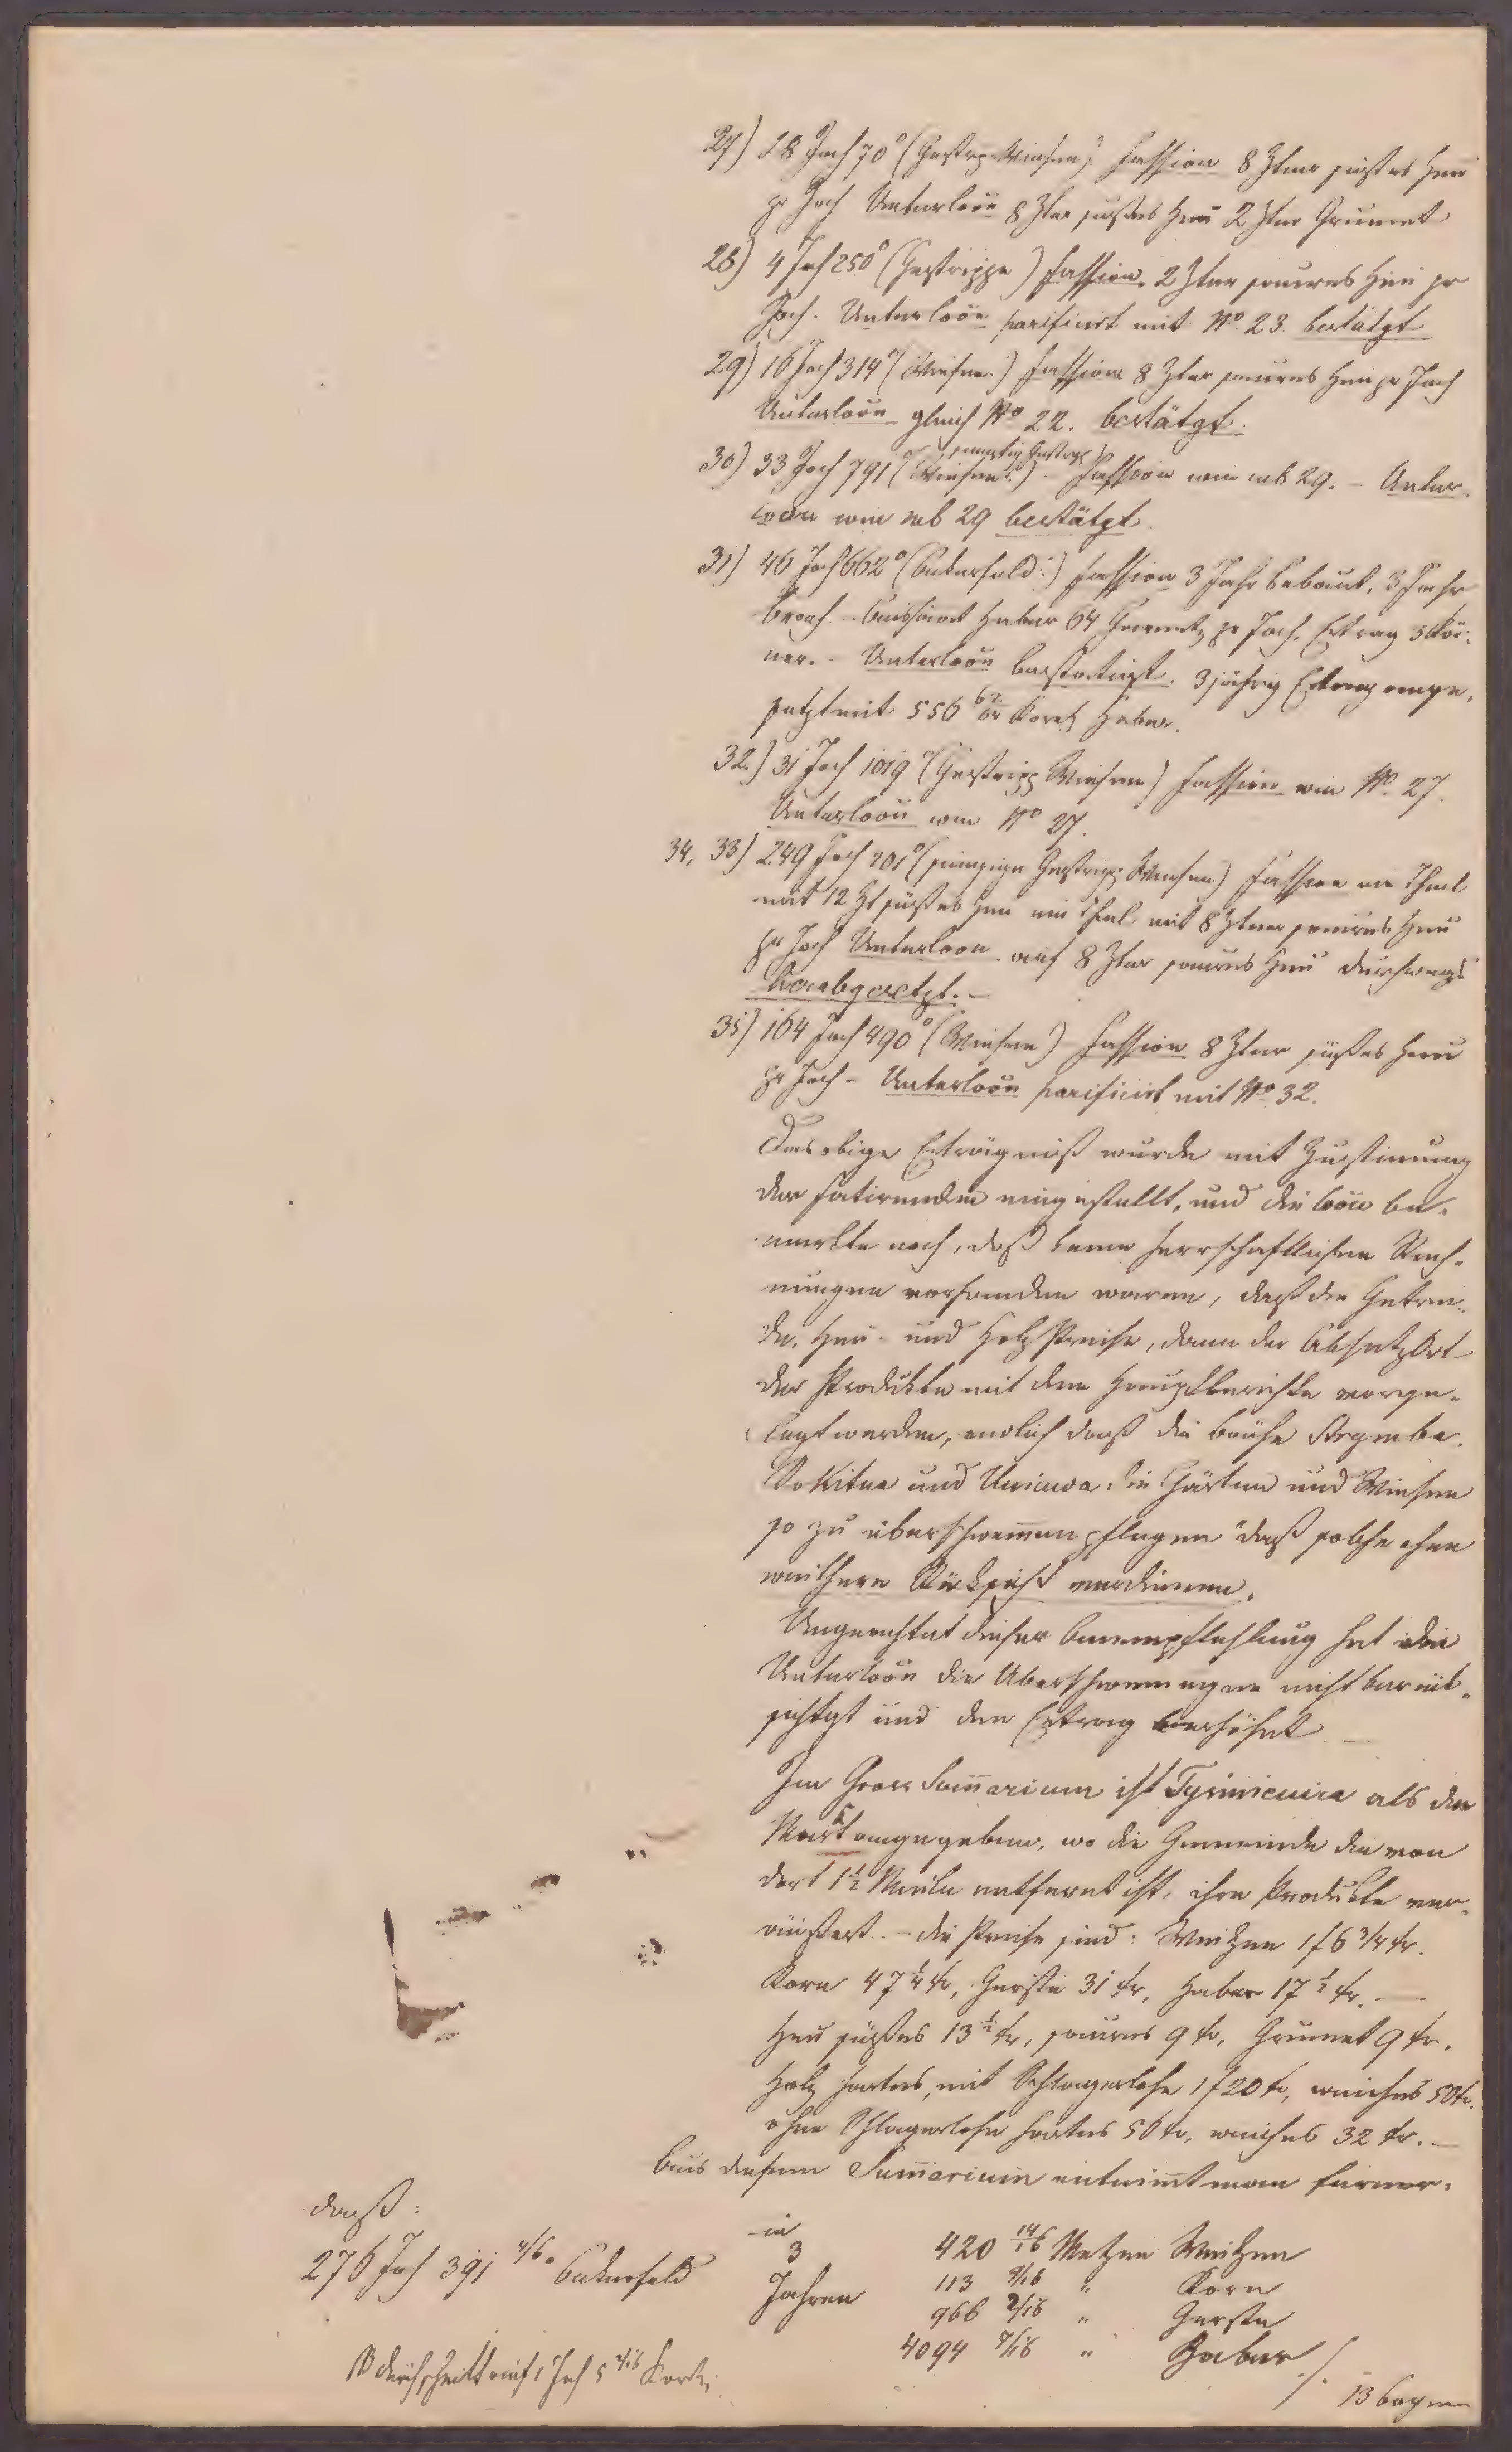 27) 28 Joch 70° (Gestrp. Wiesen) Fassion 8 Ztner süßes Heu
pr Joch Unterloōn 8 Ztner süßes Heu 2 Ztner Grumet
28) 4 Joch 250° (Gestrippe) Fassion. 2 Ztner saueres Heu pr
Joch. Unterloōn parificirt mit No 23. bestätgt
29) 16 Joch 314° (Wiesen.) Fassion 8 Ztner saueres Heu pr Joch
Unterloōn gleich No 22. bestätgt.
Gestrpp)
30) 33 Joch 791° (Wiesen) Fassion wie sub 29. - Unter-
loōn wie sub 29 bestätgt.
31) 46 Joch 662° (Ackerfeld:) Fassion 3 Jahr bebaut, 3 Jahr
brach. - Aussaat Haber 64 Garnetz pr Joch. Ertrag 3 Kör-
ner. - Unterloōn bestättigt. 3 jährig Ertrag ange-
setzt mit 556 62/64 Koretz Haber.
32.) 31 Joch 1019° (Gestripp Wiesen) Fassion wie No 27.
Unterloōn wie No 27.
34, 33) 249 Joch 201° (sumpfige Gestripp Wiesen) Fassion ein Theil
mit 12 Zt süßes Heu ein Theil mit 8 Ztner saueres Heu
pr Joch Unterloōn auf 8 Ztner saueres Heu durchwegs
herabgesetzt. -
35) 164 Joch 490° (Wiesen) Fassion 8 Ztner süßes Heu
pr Joch - Unterloōn parificirt mit No 32.
Das obige Erträgniß wurde mit Zustimung
der Fatirenden eingestellt, und die loōn be-
merkte noch, daß keine herrschaftlichen Rech-
nungen vorhanden waren, daß die Getrei-
de, Heu- und Holz Preise, dann der Absatz Ort
der Produkte mit dem Hauptberichte vorge-
legt werden, endlich daß die Bäche
Rokitna und die Gärten und Wiesen
so zu überschwem̄en pflegen "daß solche eine
weithere Rücksicht verdienen.
Ungeachtet dieser Anempfehlung hat die
Unterloōn die Uberschwemungen nicht berück-
sichtgt und den Ertrag erhöhet. -
Im Gross Sum̄arium ist Tysmienica als der
Markt angegeben, wo die Gemeinde die von
dort 1½ Meile entfernt ist, ihre Produkte ver-
äußert. - die Preise sind: Weitzen 1 f 6 3/4 kr.
Korn 47¼ kr, Gerste 31 kr, Haber 17½ kr. -
Heu süßes 13½ kr, saueres 9 kr, Grumet 9 kr.
Holz hartes, mit Schlagerlohn 1 f 20 kr, weiches 50 kr.
ohne Schlagerlohn hartes 56 kr, weiches 32 kr. -
Aus diesem Sum̄arium entnim̄t man ferner,
daß:
276 Joch 391 4/6° Ackerfeld
in
3
Jahren
420 14/16 Metzen Weitzen
113 9/16 " Korn
966 2/16 " Gerste
4094 9/16 " Haber
durchschnitt auf 1 Joch 5 Koretz
./.
13 Bogen